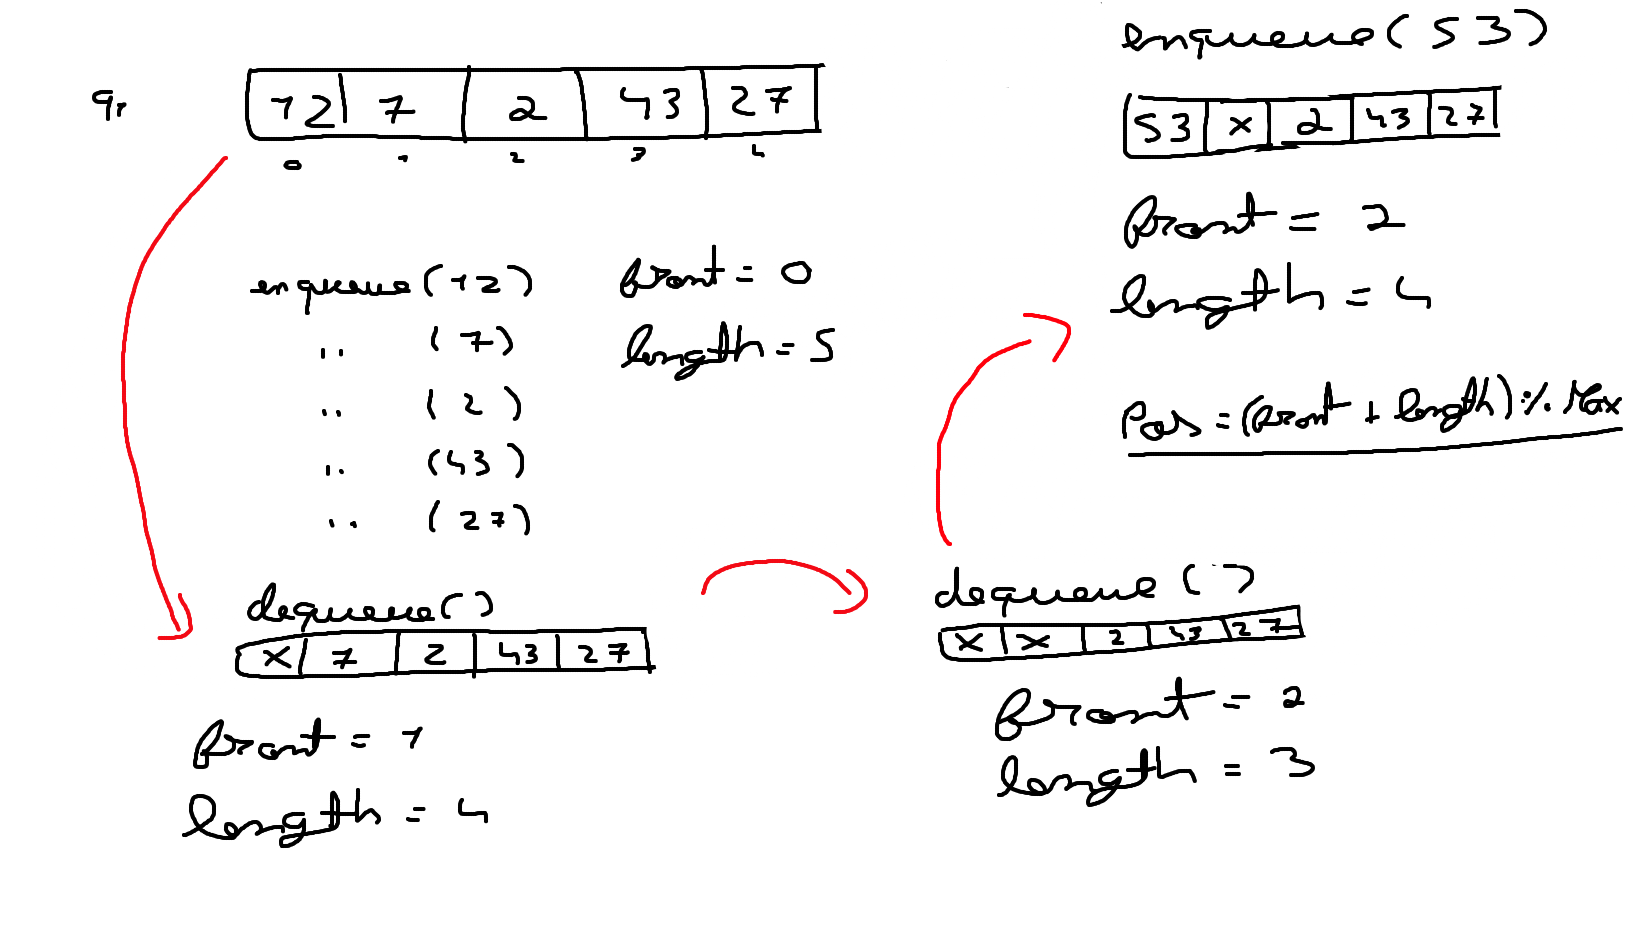 q, 12 7 2 43 27
0 1 2 3 4
enqueue(12)
" (7)
" (2)
" (43)
" (27)
front = 0
length = 5
dequeue()
x 7 2 43 27
front = 1
length = 4
dequeue()
x x 2 43 27
front = 2
length = 3
enqueue(53)
53 x 2 43 27
front = 2
length = 4
Pos = (front + length) % Max